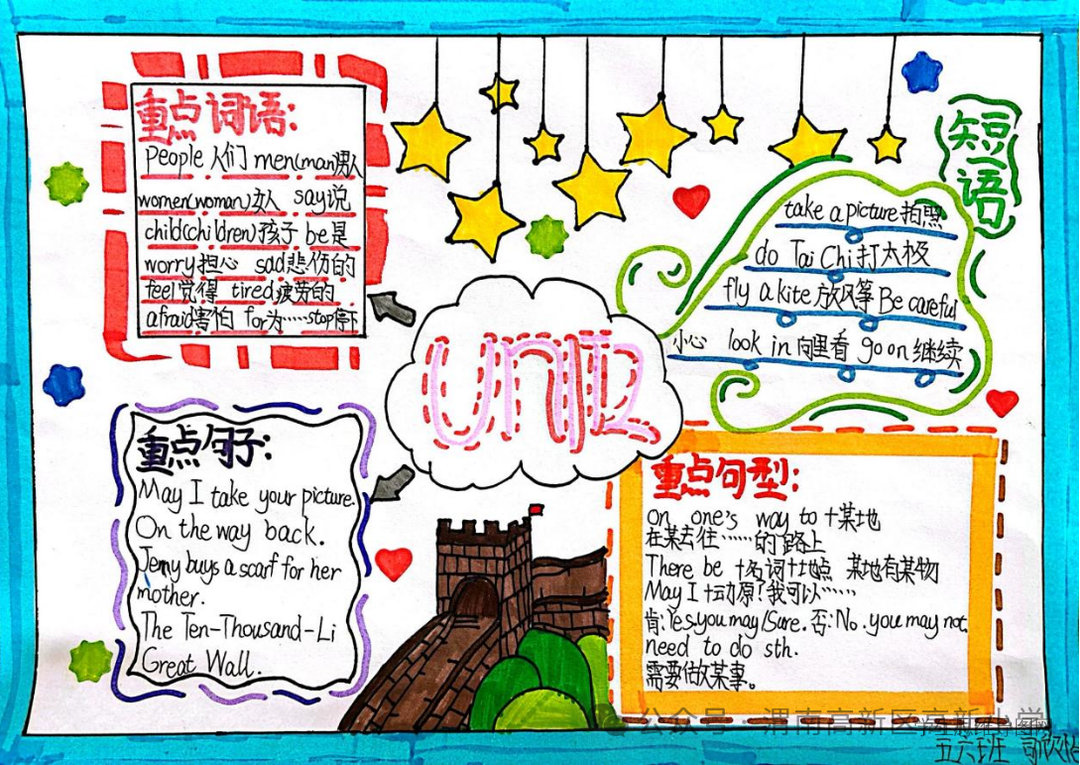 重点词语:
people 人们 men(man)男人
women(woman)女人 say说
child(children)孩子 be是
worry担心 sad悲伤的
feel觉得 tired疲劳的
afraid害怕 for为……stop停下
短语
take a picture拍照
do Tai Chi打太极
fly a kite放风筝 Be careful
小心 look in向里看 go on继续
UNIT2
重点句子:
May I take your picture.
On the way back.
Jenny buys a scarf for her
mother.
The Ten-Thousand-Li
Great Wall.
重点句型:
on one's way to +某地
在某去往……的路上
There be +名词+地点 某地有某物
May I +动原?我可以……
肯:Yes,you may/Sure.否:No.you may not.
need to do sth.
需要做某事。
公众号 · 渭南高新区高新小学
五六班